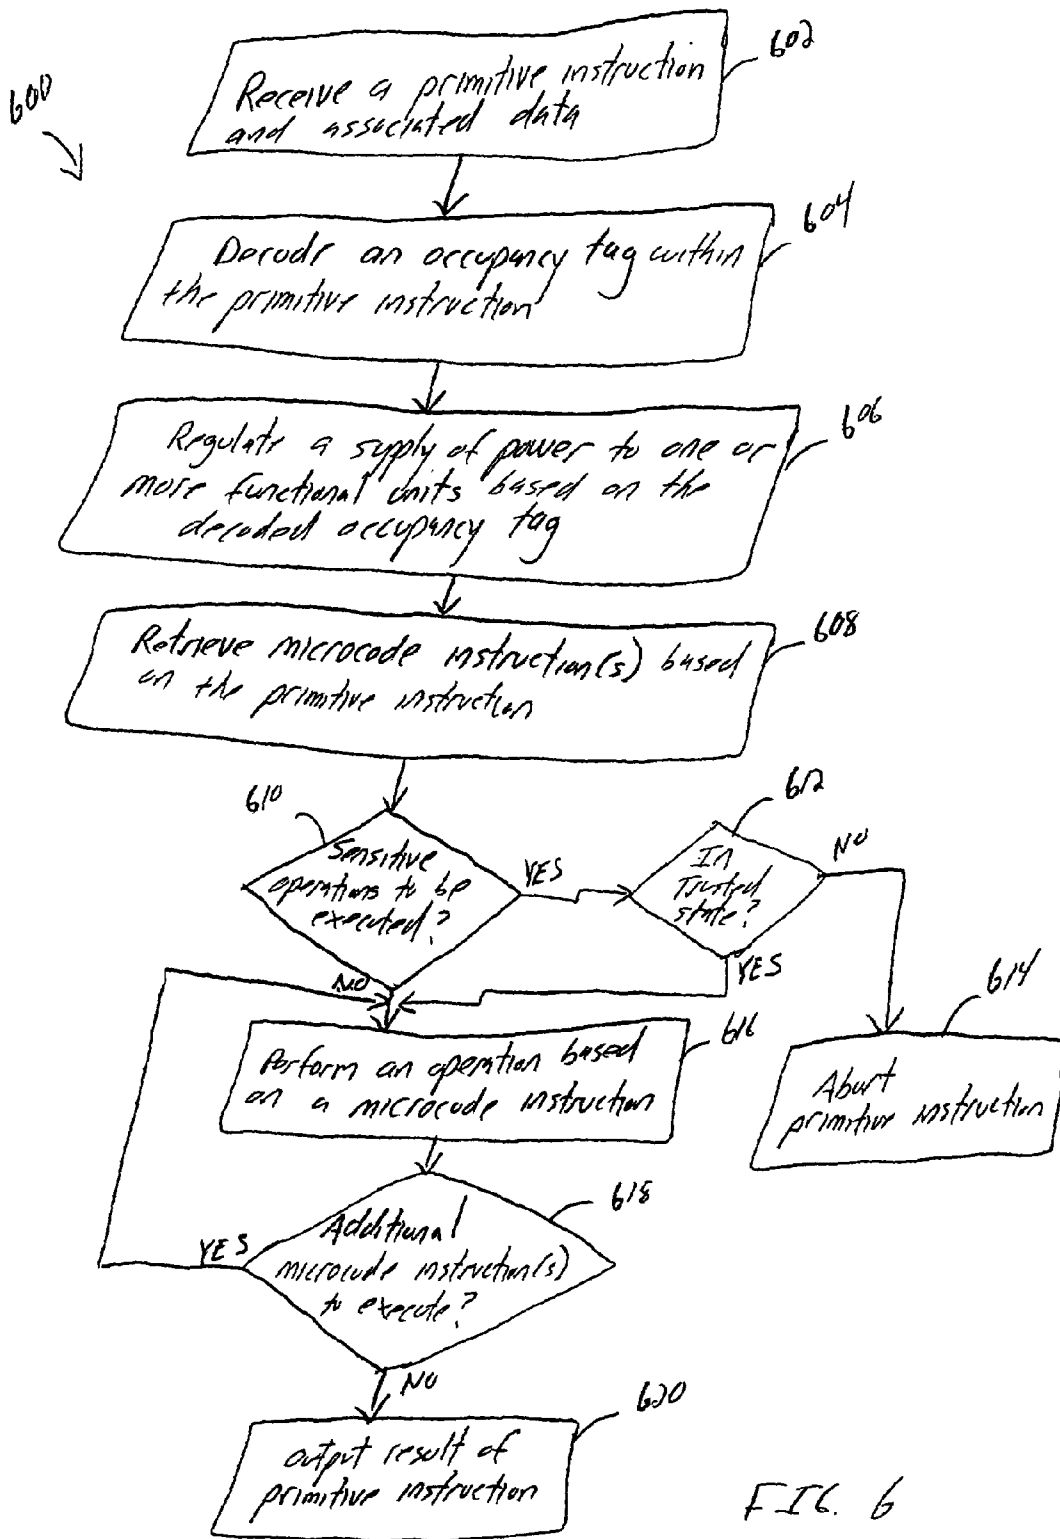 600
602
Receive a primitive instruction
and associated data
604
Decode an occupancy tag within
the primitive instruction
606
Regulate a supply of power to one or
more functional units based on the
decoded occupancy tag
608
Retrieve microcode instruction(s) based
on the primitive instruction
610
Sensitive
operations to be
executed?
YES
NO
612
In
Trusted
state?
NO
YES
614
Abort
primitive instruction
616
Perform an operation based
on a microcode instruction
618
Additional
microcode instruction(s)
to execute?
YES
NO
620
output result of
primitive instruction
FIG. 6